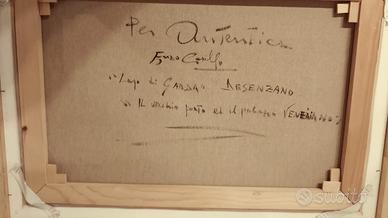 Per Autentica
Enzo
"Lago di GARDA" DESENZANO
Il vecchio porto ed il palazzo VENEZIANO"
subito